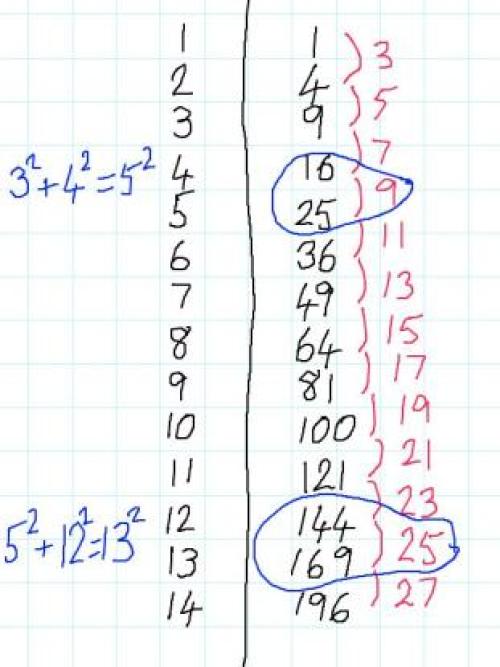 1 1
3
2 4
5
3 9
7
3²+4²=5² 4 16
9
5 25
11
6 36
13
7 49
15
8 64
17
9 81
19
10 100
21
11 121
23
5²+12²=13² 12 144
25
13 169
27
14 196